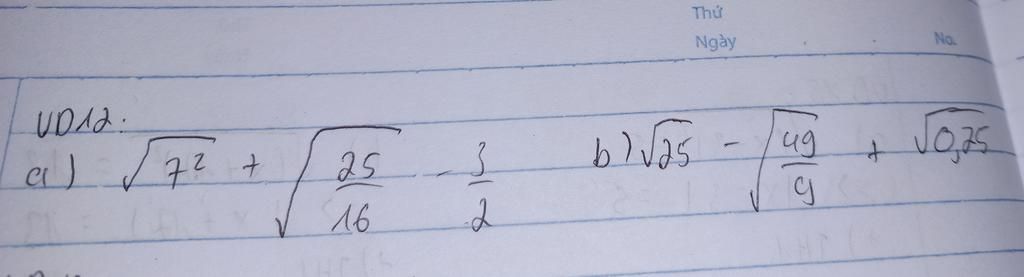 Thứ
Ngày No.
VD12:
a) √7² + √25/16 - 3/2 b) √25 - √49/9 + √0,25